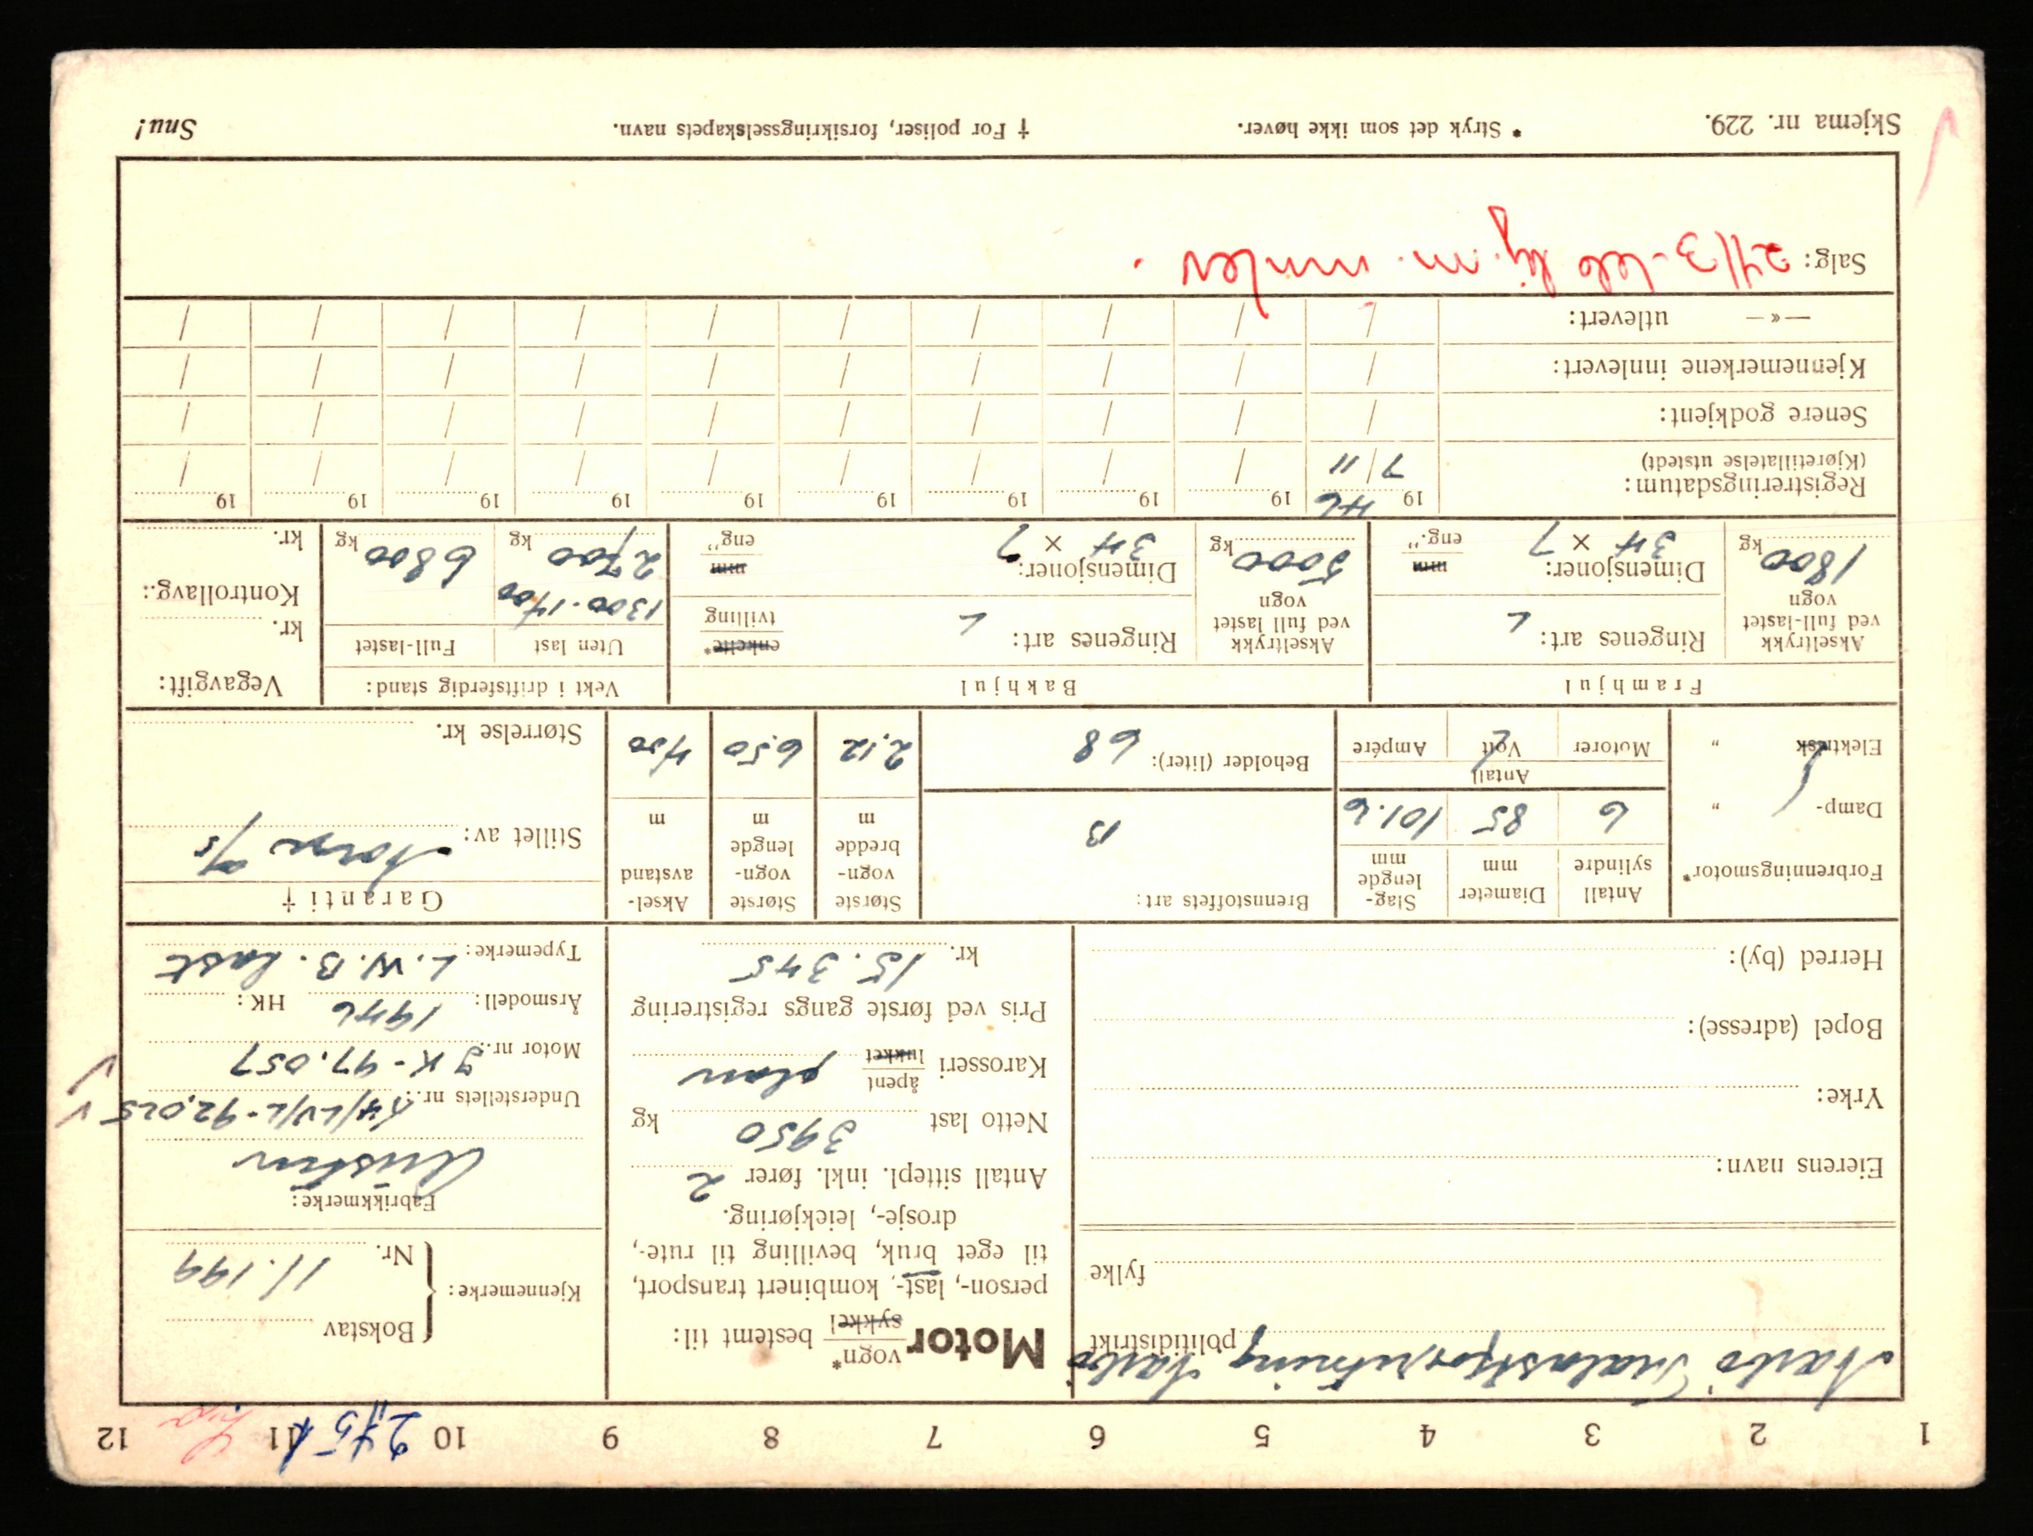 1 2 3 4 5 6 7 8 9 10 11 12
275
Nærbø Nærbø
politidistrikt
fylke
Eierens navn:
Yrke:
Bopel (adresse):
Herred (by):
Motor vogn* sykkel bestemt til:
person-, last-, kombinert transport,
til eget bruk, bevilling til rute-,
drosje-, leiekjøring.
Antall sittepl. inkl. fører 2
Netto last 3950 kg
Karosseri åpent lukket plan
Pris ved første gangs registrering
kr. 15.345
Kjennemerke: { Bokstav
Nr. 11.199
Fabrikkmerke:
Austin
Understellets nr.: K4/LV/L-92,025
Motor nr.: 3K-97.057
Årsmodell: 1946 HK:
Typemerke: L.W.B. last
Forbrenningsmotor*
Damp- "
Elektrisk "
Antall sylindre 6
Diameter mm 85
Slag-lengde mm 101.6
Antall
Motorer Volt Ampére
Brennstoffets art:
B
Beholder (liter): 68
Største vogn-bredde m 2,12
Største vogn-lengde m 6,50
Aksel-avstand m 4,00
Garanti †
Stillet av: Norge a/s
Størrelse kr.
Framhjul
Akseltrykk ved full-lastet vogn
1800 kg
Ringenes art: L
Dimensjoner: 34 × 7 mm eng."
Bakhjul
Akseltrykk ved full lastet vogn
5000 kg
Ringenes art: L enkelte* tvilling
Dimensjoner: 34 × 7 mm eng"
Vekt i driftsferdig stand:
Uten last Full-lastet
1300.1400
2700 kg 6800 kg
Vegavgift:
kr.
Kontrollavg.:
kr.
Registreringsdatum:
(Kjøretillatelse utstedt)
1946 19 19 19 19 19 19 19 19 19
7/11 / / / / / / / / /
Senere godkjent: / / / / / / / / / /
Kjennemerkene innlevert: / / / / / / / / / /
—«— utlevert: / / / / / / / / / /
Salg: 24/3-66 kj.m. innlev.
Skjema nr. 229. * Stryk det som ikke høver. † For poliser, forsikringsselskapets navn. Snu!